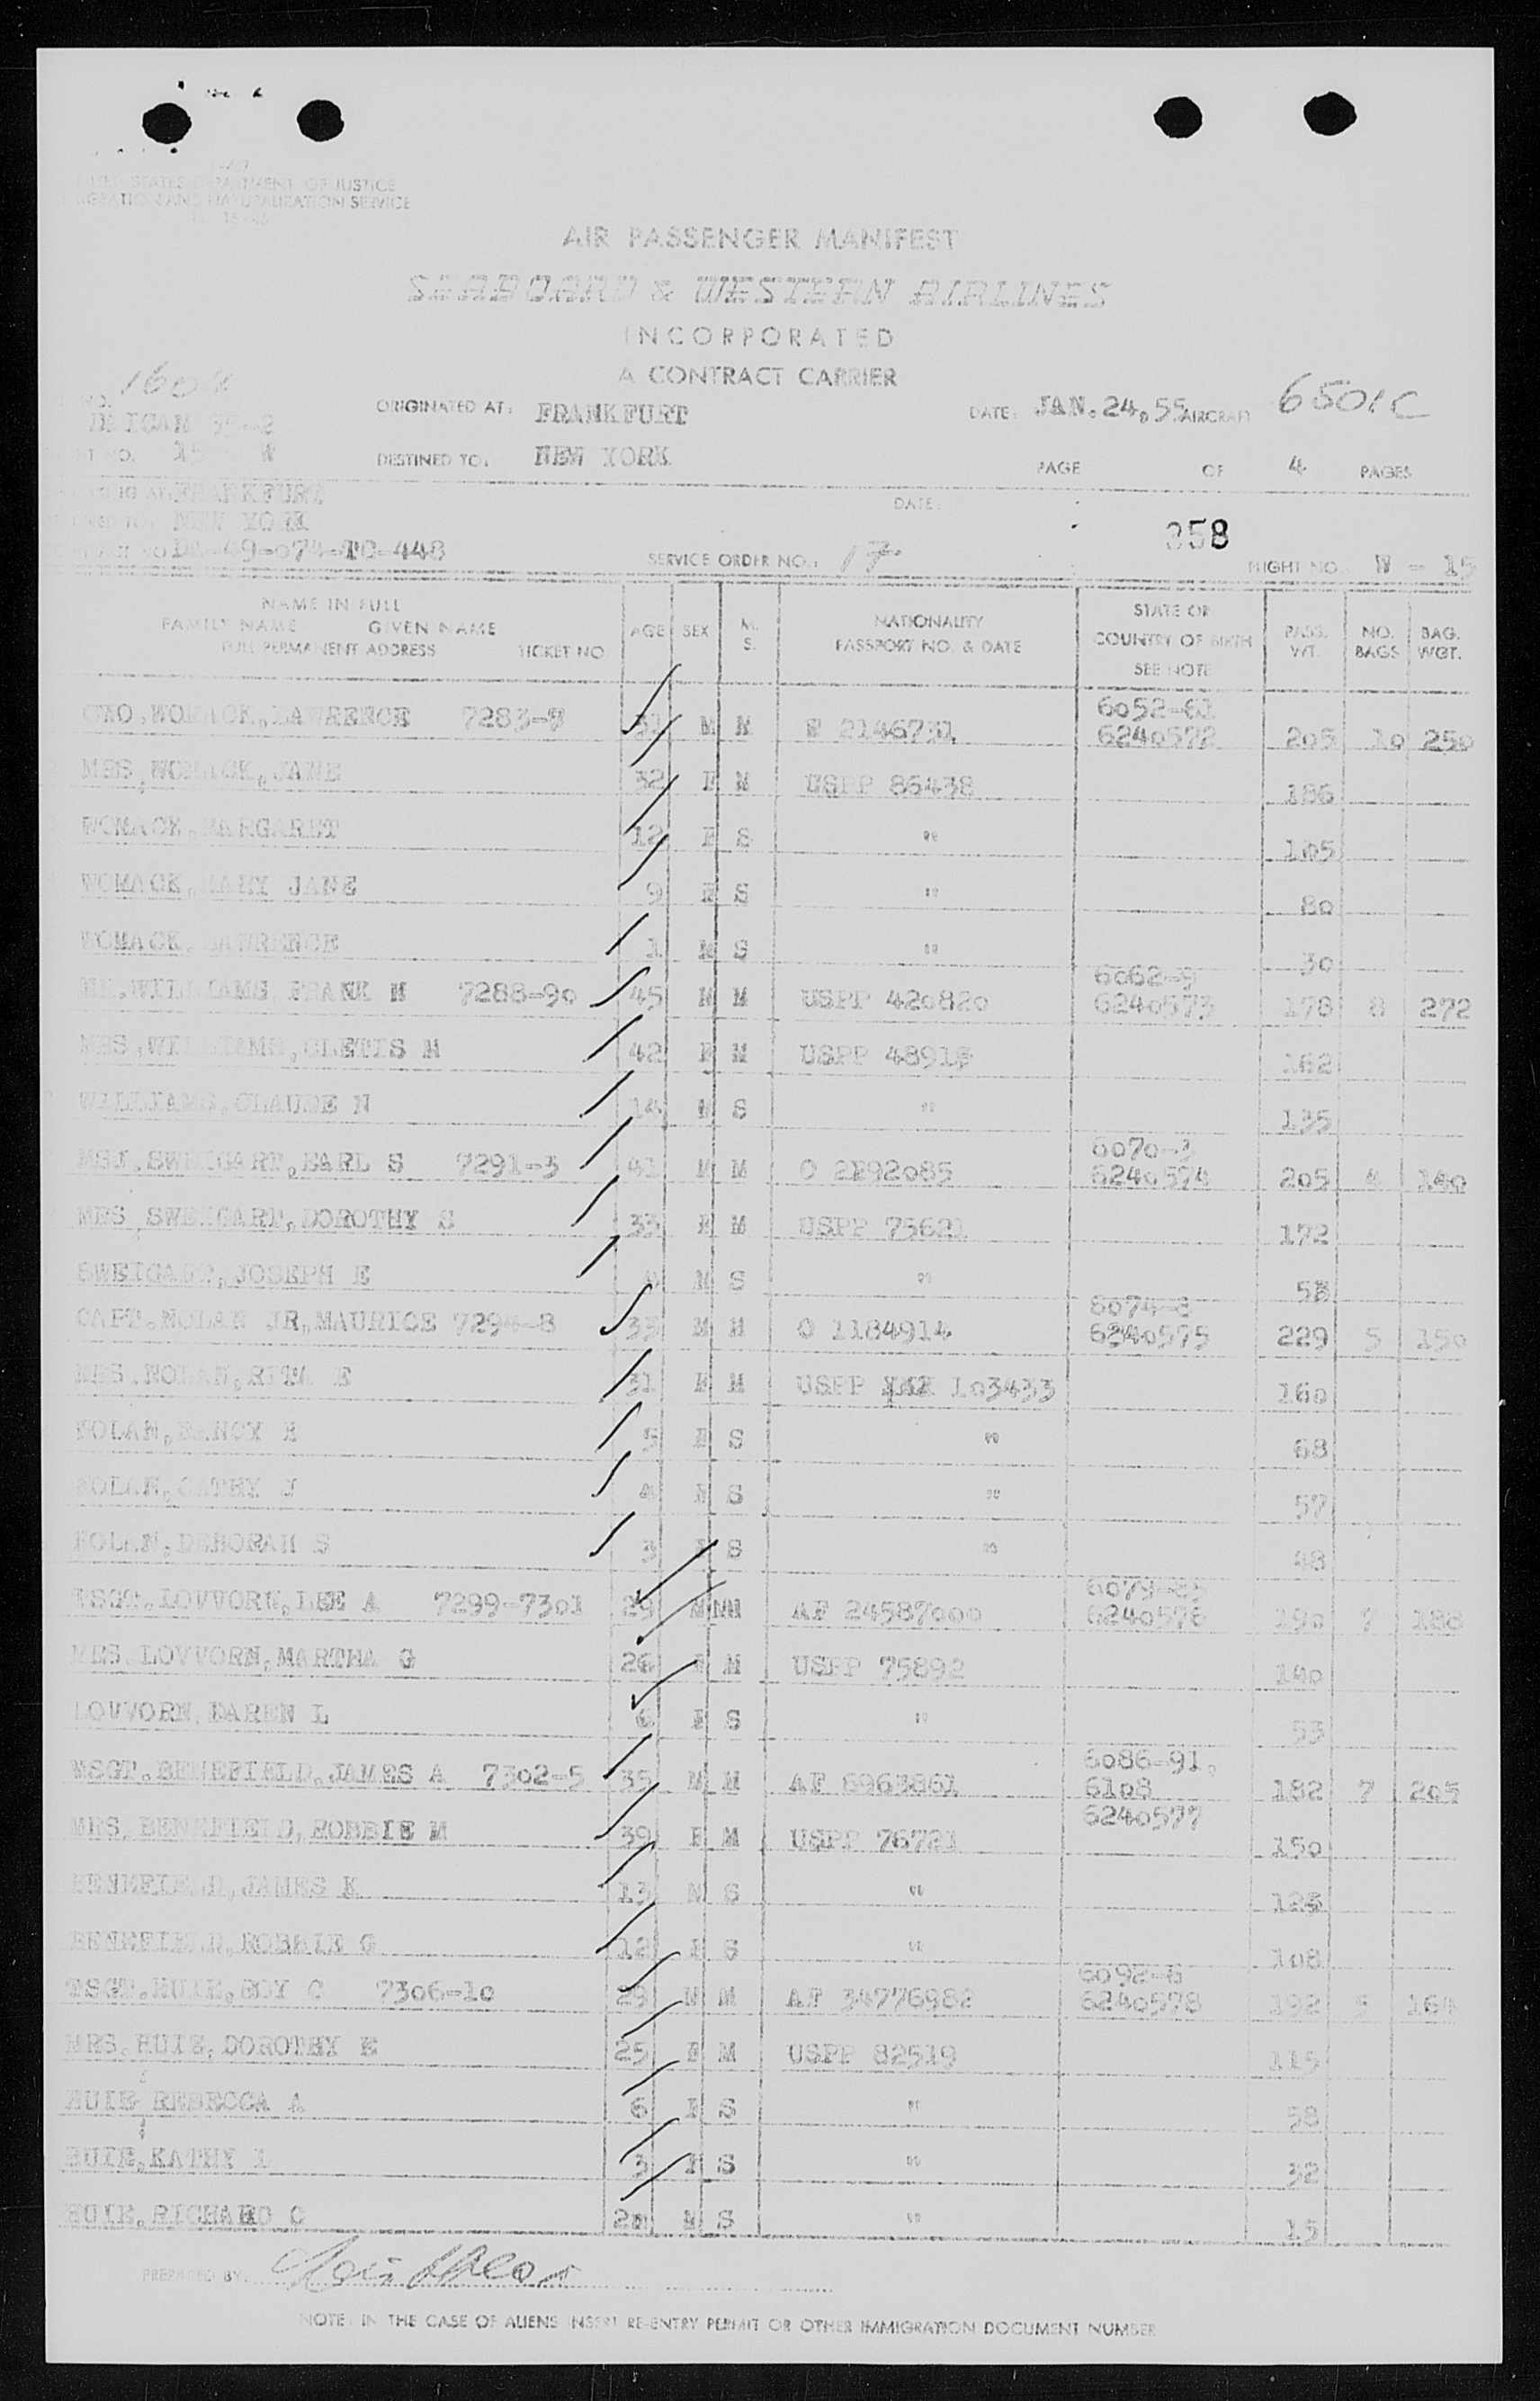 STATES DEPARTMENT OF JUSTICE
AND NATURALIZATION SERVICE
AIR PASSENGER MANIFEST
SEABOARD & WESTERN AIRLINES
INCORPORATED
A CONTRACT CARRIER
NO. ORIGINATED AT: FRANKFURT DATE: JAN. 24, 55 AIRCRAFT 6501C
DESTINED TO: NEW YORK PAGE OF 4 PAGES
FRANKFURT DATE:
NEW YORK 358
-074-TO-448 SERVICE ORDER NO.: 17 FLIGHT NO. W - 15
NAME IN FULL
FAMILY NAME GIVEN NAME
FULL PERMANENT ADDRESS TICKET NO AGE SEX M. S. NATIONALITY PASSPORT NO. & DATE STATE OR COUNTRY OF BIRTH SEE NOTE PASS. WT. NO. BAGS BAG. WGT.
WOMACK, LAWRENCE 7283-7 31 M M 2146731 6052-61 6240572 205 10 250
MRS, WOMACK, JANE 32 F M USPP 86438 186
WOMACK, MARGARET 12 F S " 105
WOMACK, MARY JANE 9 F S " 80
WOMACK, LAWRENCE 1 M S " 30
MR. WILLIAMS FRANK N 7288-90 45 M M USPP 420820 6062-9 6240573 178 8 272
MRS, WILLIAMS, CLETIS M 42 F M USPP 162
WILLIAMS, CLAUDE N 14 M S " 135
SWEIGART, EARL S 7291-3 41 M M O 6070-3 6240574 205 4 140
MRS SWEIGART, DOROTHY S 33 F M USPP 75621 172
SWEIGART, JOSEPH E M S "
CAPT. NOLAN JR, MAURICE 33 M M O 1184914 6240575 229 5 150
MRS. NOLAN, RITA E 31 F M USPP 103433 160
NOLAN, NANCY 5 F S " 68
NOLAN, CATHY J 4 F S " 57
NOLAN, DEBORAH S 3 F S " 48
TSGT. LOVVORN, LEE A 7299-7301 29 M M AF 24587000 6079-85 6240576 190 7 188
MRS. LOVVORN, MARTHA G 26 F M USPP 75892 140
LOVVORN, DAREN L 6 F S " 53
MSGT. BENEFIELD, JAMES A 7302-5 35 M M AF 6963861 6086-91, 6108 182 7 205
MRS. BENEFIELD, BOBBIE M 39 F M USPP 76721 6240577 150
BENEFIELD, JAMES K 13 M S "
BENEFIELD, BOBBIE G 12 F S " 108
TSGT. HUIE, ROY C 7306-10 29 M M AF 34776982 6240578 192 5 164
MRS. HUIE, DOROTHY E 25 F M USPP 82519 115
HUIE REBECCA A 6 F S " 58
HUIE, KATHY L 3 F S " 32
HUIE, RICHARD C M S " 15
PREPARED BY:
NOTE: IN THE CASE OF ALIENS INSERT RE-ENTRY PERMIT OR OTHER IMMIGRATION DOCUMENT NUMBER